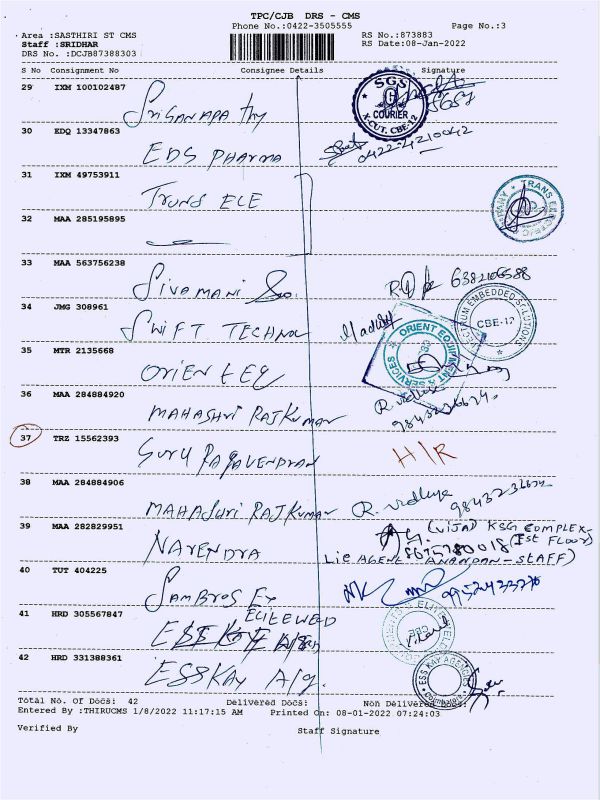 TPC/CJB DRS - CMS
Phone No.:0422-3505555 Page No.:3
Area :SASTHIRI ST CMS RS No.:873883
Staff :SRIDHAR RS Date:08-Jan-2022
DRS No. :DCJB87388303
S No Consignment No Consignee Details Signature
29 IXM 100102487
Sriganapathy
SGS COURIER X-CUT. CBE-12
30 EDQ 13347863
EDS PHARMA 0422-4210042
31 IXM 49753911
Trans ELE
32 MAA 285195895
33 MAA 563756238
Sivamani
34 JMG 308961
SWIFT TECHNO
CBE-12
35 MTR 2135668
ORIENT EQ
ORIENT EQUIPMENT & SERVICES
36 MAA 284884920
MAHASHRI RAJKUMAR R. vidhya
37 TRZ 15562393
GURU RAGAVENDRAN H/R
38 MAA 284884906
MAHASHRI RAJKUMAR R. vidhya
39 MAA 282829951
(VIJAI) KSG COMPLEX-
(Ist FLOOR)
NARENDRA
LIC AGENT ANANDAN-STAFF)
40 TUT 404225
SAMBROS
41 HRD 305567847
ELITEWELD
42 HRD 331388361
ESSKAY A/g.
ESS KAY AGENCIES
Total No. Of Docs: 42 Delivered Docs: Non Delivered Docs:
Entered By :THIRUCMS 1/8/2022 11:17:15 AM Printed On: 08-01-2022 07:24:03
Verified By Staff Signature